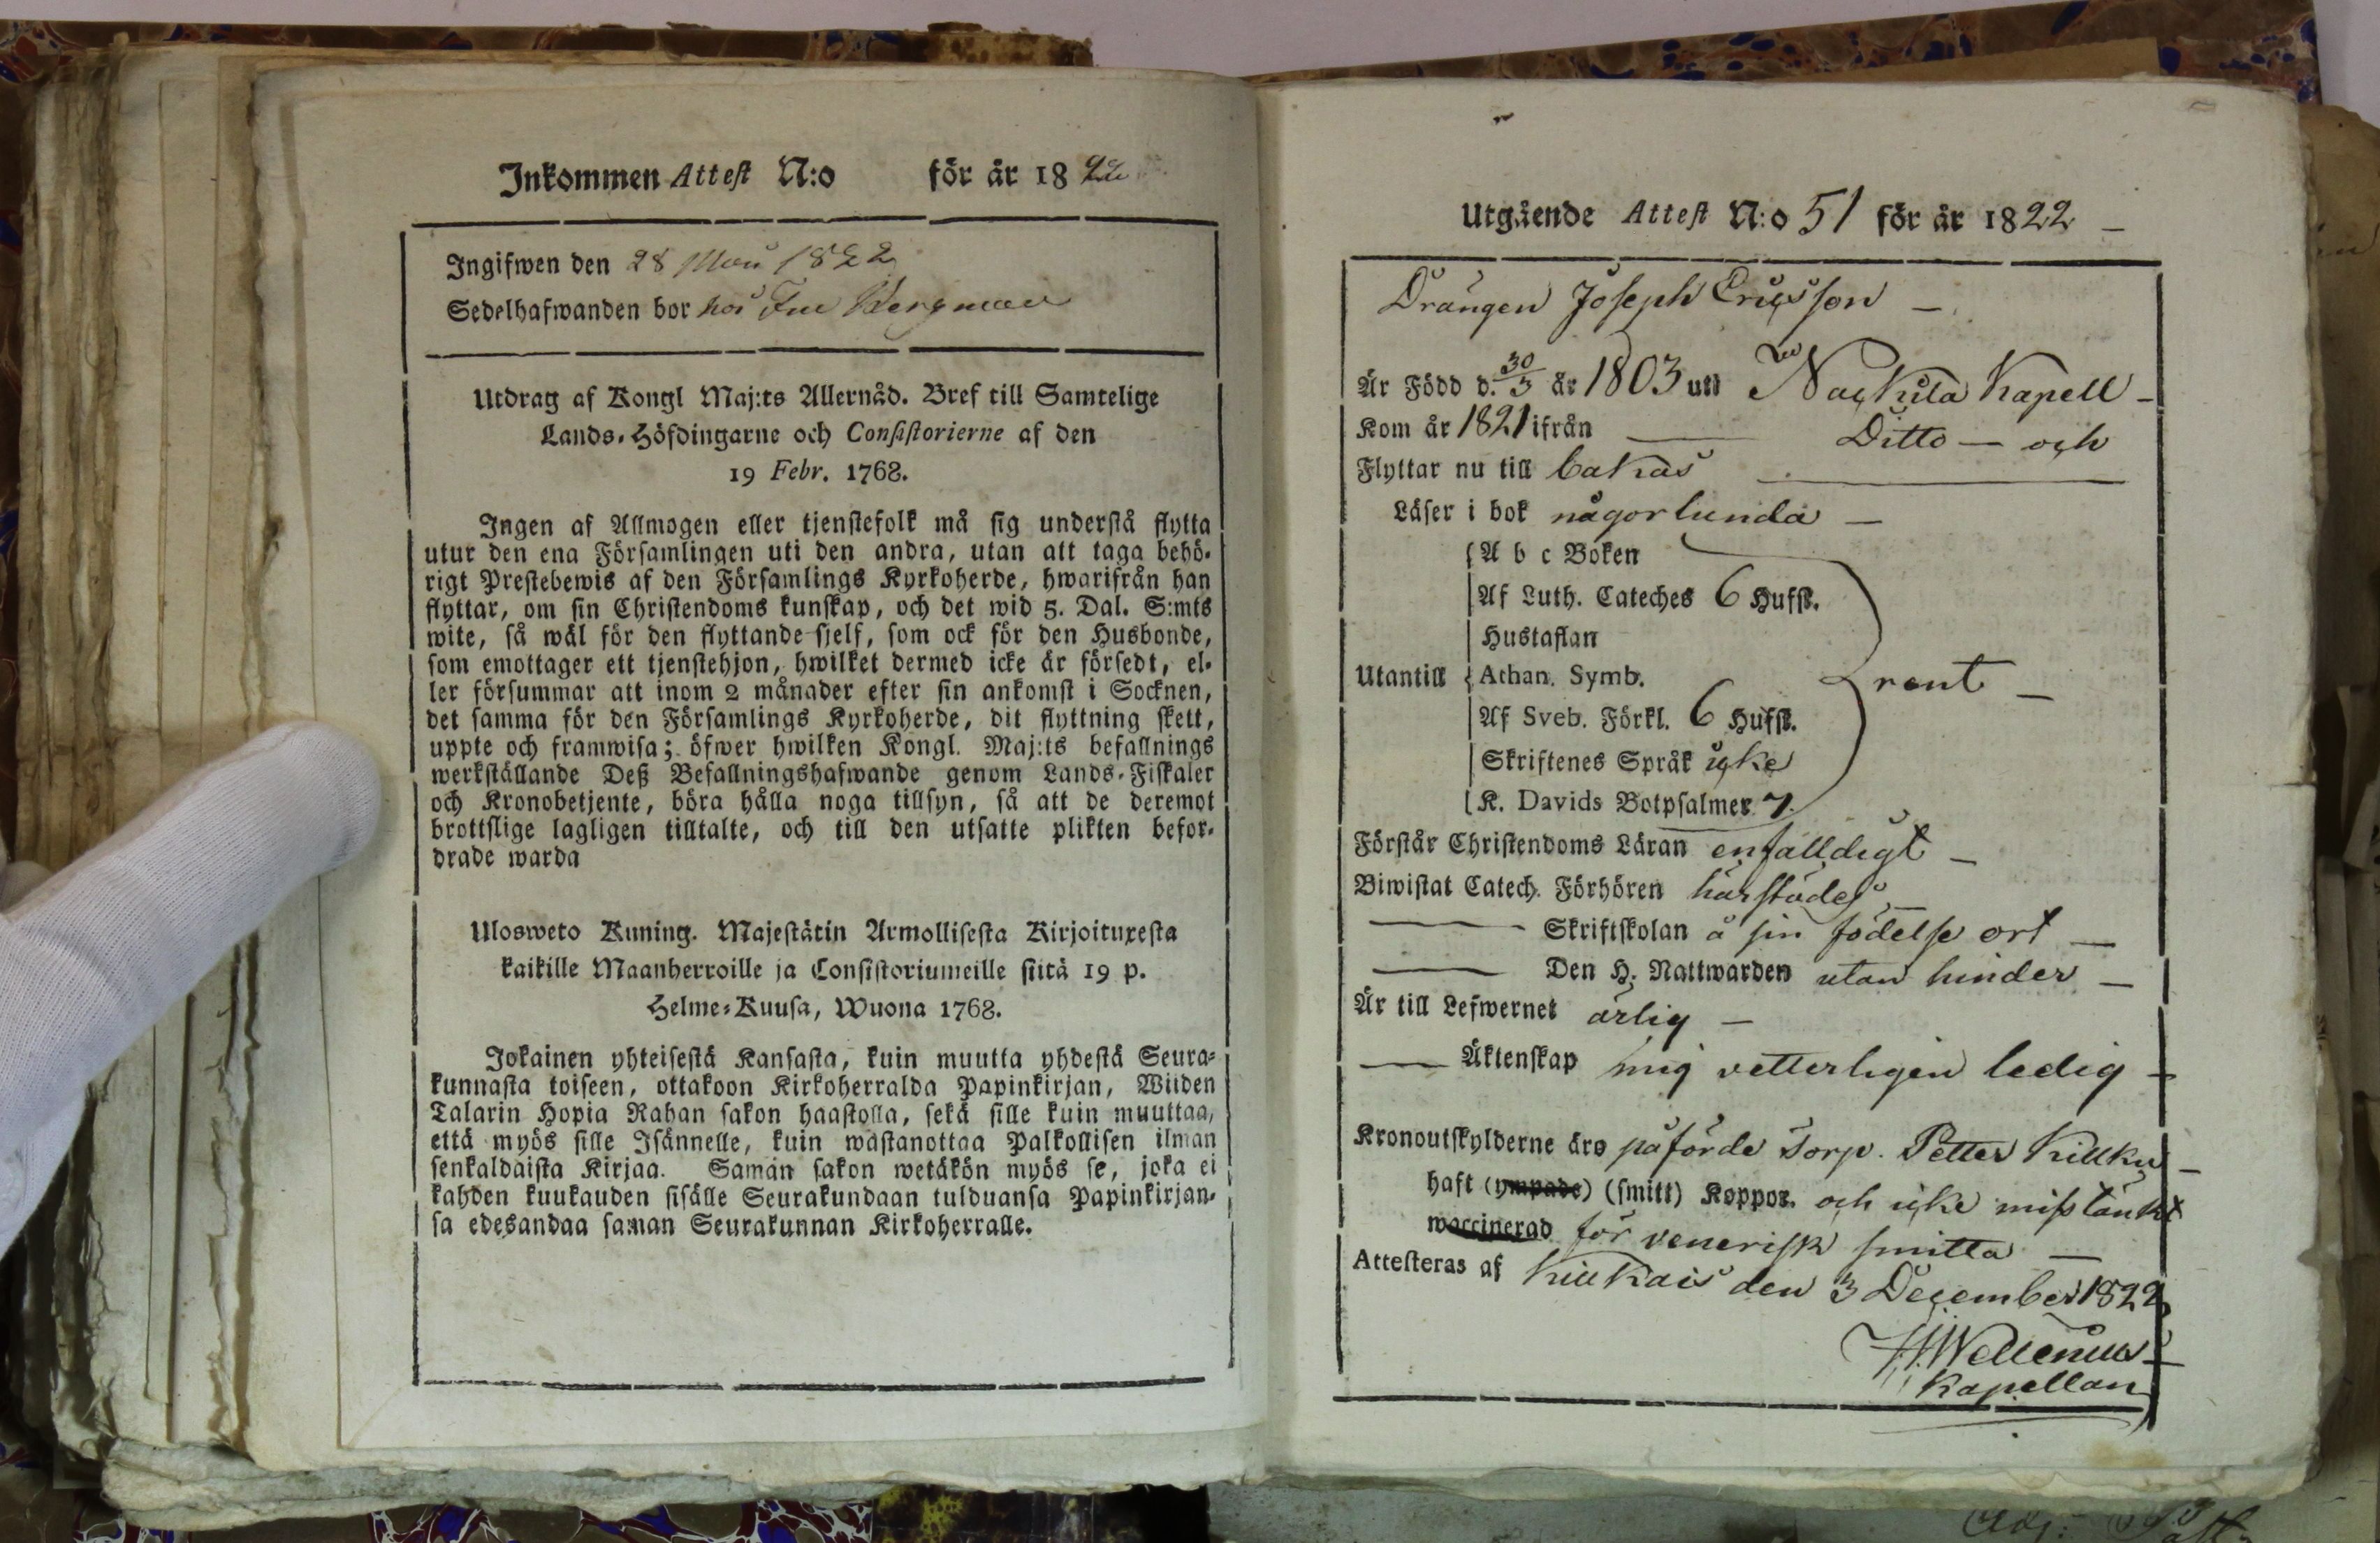 Inkommen Attest N:o för år 1822
Ingifwen den 28 1822
Sedelhafwanden bor hos Bergman
Utdrag af Kongl Maj:ts Allernåd. Bref till Samtelige
Lands-Höfdingarne och Consistorierne af den
19 Febr. 1768.
Ingen af Allmogen eller tjenstefolk må sig understå flytta
utur den ena Församlingen uti den andra, utan att taga behö-
rigt Prestebewis af den Församlings Kyrkoherde, hwarifrån han
flyttar, om sin Christendoms kunskap, och det wid 5. Dal. S:mts
wite, så wäl för den flyttande sjelf, som ock för den Husbonde,
som emottager ett tjenstehjon, hwilket dermed icke är försedt, el-
ler försummar att inom 2 månader efter sin ankomst i Socknen,
det samma för den Församlings Kyrkoherde, dit flyttning skett,
uppte och framwisa; öfwer hwilken Kongl. Maj:ts befallnings
werkställande Deß Befallningshafwande genom Lands-Fiskaler
och Kronobetjente, böra hålla noga tillsyn, så att de deremot
brottslige lagligen tilltalte, och till den utsatte plikten befor-
drade warda
Ulosweto Kuning. Majestätin Armollisesta Kirjoituxesta
kaikille Maanherroille ja Consistoriumeille siitä 19 p.
Helme-Kuusa, Wuona 1768.
Jokainen yhteisestä Kansasta, kuin muutta yhdestä Seura-
kunnasta toiseen, ottakoon Kirkoherralda Papinkirjan, Wiiden
Talarin Hopia Rahan sakon haastolla, sekä sille kuin muuttaa,
että myös sille Isännelle, kuin wastanottaa Palkollisen ilman
senkaldaista Kirjaa. Samän sakon wetäkön myös se, joka ei
kahden kuukauden sisälle Seurakundaan tulduansa Papinkirjan-
sa edesandaa saman Seurakunnan Kirkoherralle.
Utgående Attest N:o 51 för år 1822
Drängen Joseph Ericsson
Är Född d. 30/3 år 1803 uti Nackila Kapell
Kom år 1821 ifrån Ditto och
Flyttar nu till bakas
Läser i bok någorlunda
A b c Boken
Af Luth. Cateches 6 Hufst.
Hustaflan
Utantill Athan. Symb. rent
Af Sveb. Förkl. 6 Hufst.
Skriftenes Språk icke
K. Davids Botpsalmer 7.
Förstår Christendoms Läran enfalldigt
Biwistat Catech. Förhören härstädes
Skriftskolan å sin födelse ort
Den H. Nattwarden utan hinder
Är till Lefwernet ärlig
Äktenskap mig vetterligen ledig
Kronoutskylderne äro påförde Torp. Petter Killku
haft (ympade) (smitt) Koppor. och icke misstänkt
waccinerad för venerisk smitta
Attesteras af Kiukais den 3 December 1822
Kapellan